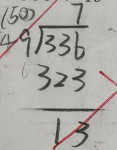 (500)
7
49)336
323
13